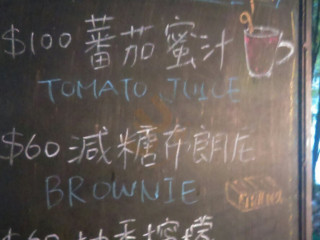 $100 蕃茄蜜汁
TOMATO JUICE
$60 減糖布朗尼
BROWNIE
$60